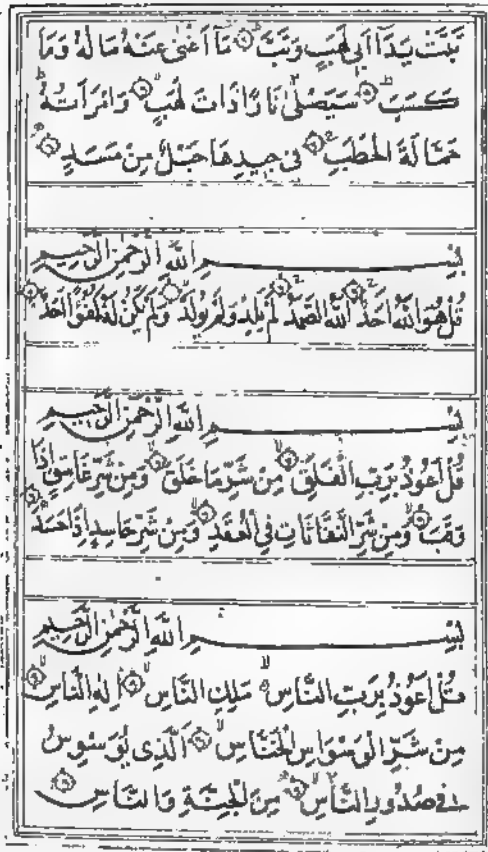 تَبَّتْ يَدَآ اَبِىْ لَهَبٍ وَّتَبَّ ۞ مَآ اَغْنٰى عَنْهُ مَالُهٗ وَمَا
كَسَبَ ۞ سَيَصْلٰى نَارًا ذَاتَ لَهَبٍ ۞ وَامْرَاَتُهٗ
حَمَّالَةَ الْحَطَبِ ۞ فِىْ جِيْدِهَا حَبْلٌ مِّنْ مَّسَدٍ ۞
بِسْمِ اللّٰهِ الرَّحْمٰنِ الرَّحِيْمِ
قُلْ هُوَ اللّٰهُ اَحَدٌ ۞ اَللّٰهُ الصَّمَدُ ۞ لَمْ يَلِدْ وَلَمْ يُوْلَدْ ۞ وَلَمْ يَكُنْ لَّهٗ كُفُوًا اَحَدٌ ۞
بِسْمِ اللّٰهِ الرَّحْمٰنِ الرَّحِيْمِ
قُلْ اَعُوْذُ بِرَبِّ الْفَلَقِ ۞ مِنْ شَرِّ مَا خَلَقَ ۞ وَمِنْ شَرِّ غَاسِقٍ اِذَا
وَقَبَ ۞ وَمِنْ شَرِّ النَّفّٰثٰتِ فِى الْعُقَدِ ۞ وَمِنْ شَرِّ حَاسِدٍ اِذَا حَسَدَ ۞
بِسْمِ اللّٰهِ الرَّحْمٰنِ الرَّحِيْمِ
قُلْ اَعُوْذُ بِرَبِّ النَّاسِ ۞ مَلِكِ النَّاسِ ۞ اِلٰهِ النَّاسِ ۞
مِنْ شَرِّ الْوَسْوَاسِ الْخَنَّاسِ ۞ الَّذِىْ يُوَسْوِسُ
فِىْ صُدُوْرِ النَّاسِ ۞ مِنَ الْجِنَّةِ وَالنَّاسِ ۞